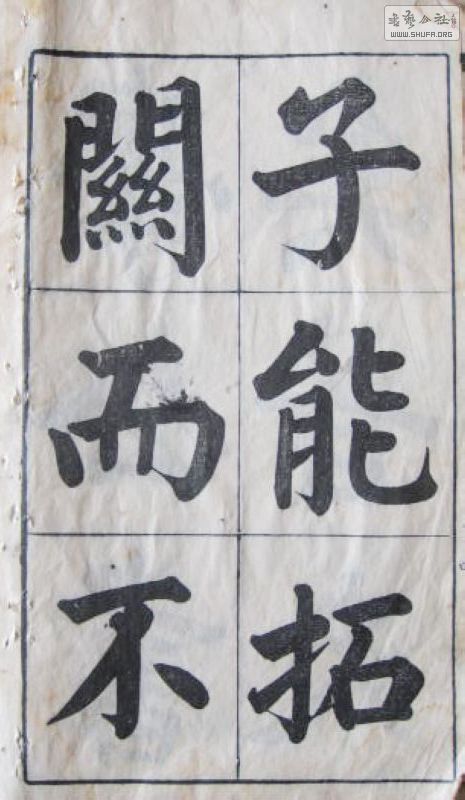 子能拓
關而不
书艺公社
WWW.SHUFA.ORG